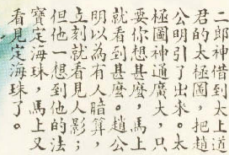 二郎神借到太上道
君的太極圖，把趙
公明引了出來。太
極圖神通廣大，只
要你想甚麼，馬上
就看到甚麼。趙公
明以為有人暗算，
立刻就看見人影；
但他一想到他的法
寶定海珠，馬上又
看見定海珠了。